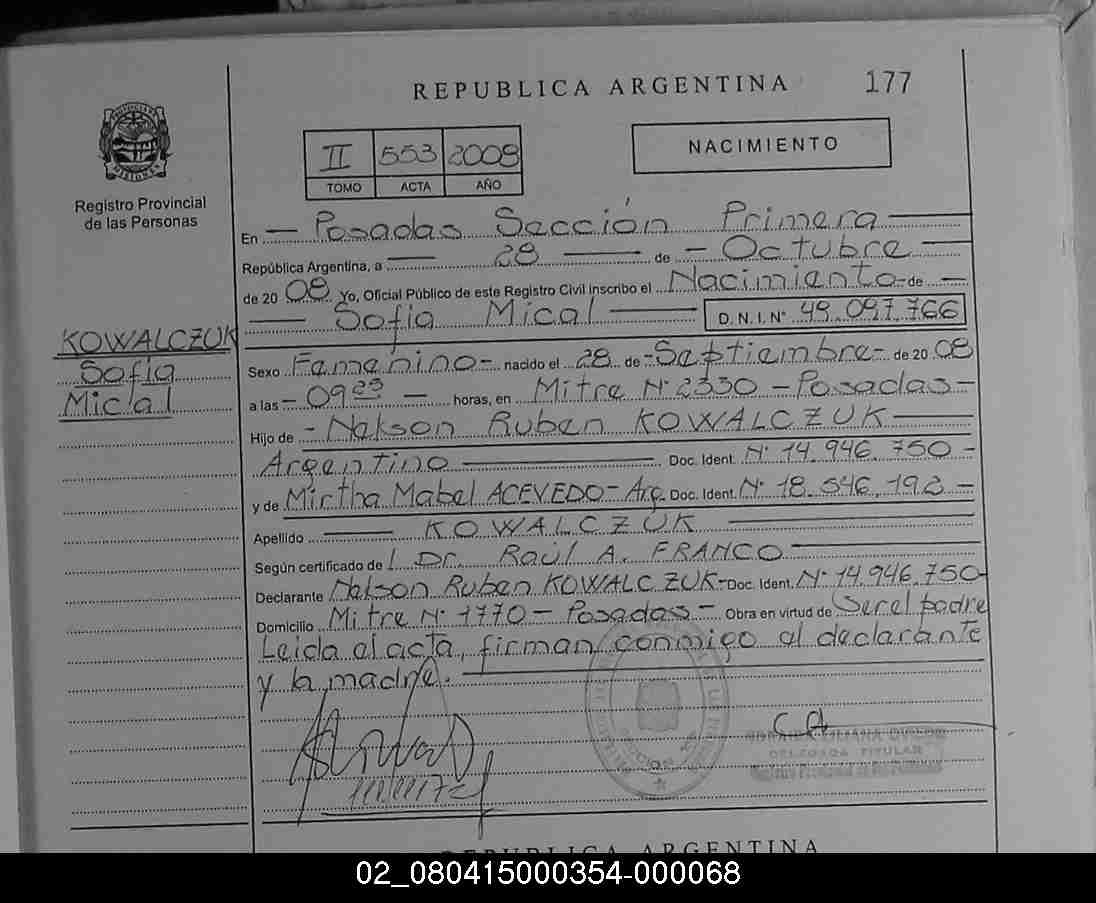 REPUBLICA ARGENTINA 177
II 553 2008
TOMO ACTA AÑO
NACIMIENTO
Registro Provincial
de las Personas
En Posadas Sección Primera
República Argentina, a 28 de Octubre
de 2008 Yo, Oficial Público de este Registro Civil inscribo el Nacimiento de
Sofia Mical D.N.I.Nº 49.097.766
KOWALCZUK
Sofia
Mical
Sexo Femenino nacido el 28 de Septiembre de 2008
a las 09 25 horas, en Mitre Nº 2330 - Posadas
Hijo de Nelson Ruben KOWALCZUK
Argentino Doc. Ident. Nº 14.946.750
y de Mirtha Mabel ACEVEDO - Arg. Doc. Ident. Nº 18.546.193
Apellido KOWALCZUK
Según certificado de Dr. Raul A. FRANCO
Declarante Nelson Ruben KOWALCZUK - Doc. Ident. Nº 14.946.750
Domicilio Mitre Nº 1770 - Posadas - Obra en virtud de Ser el padre
Leida el acta, firman conmigo el declarante
y la madre.
DELEGADA TITULAR
REPUBLICA ARGENTINA
02_080415000354-000068